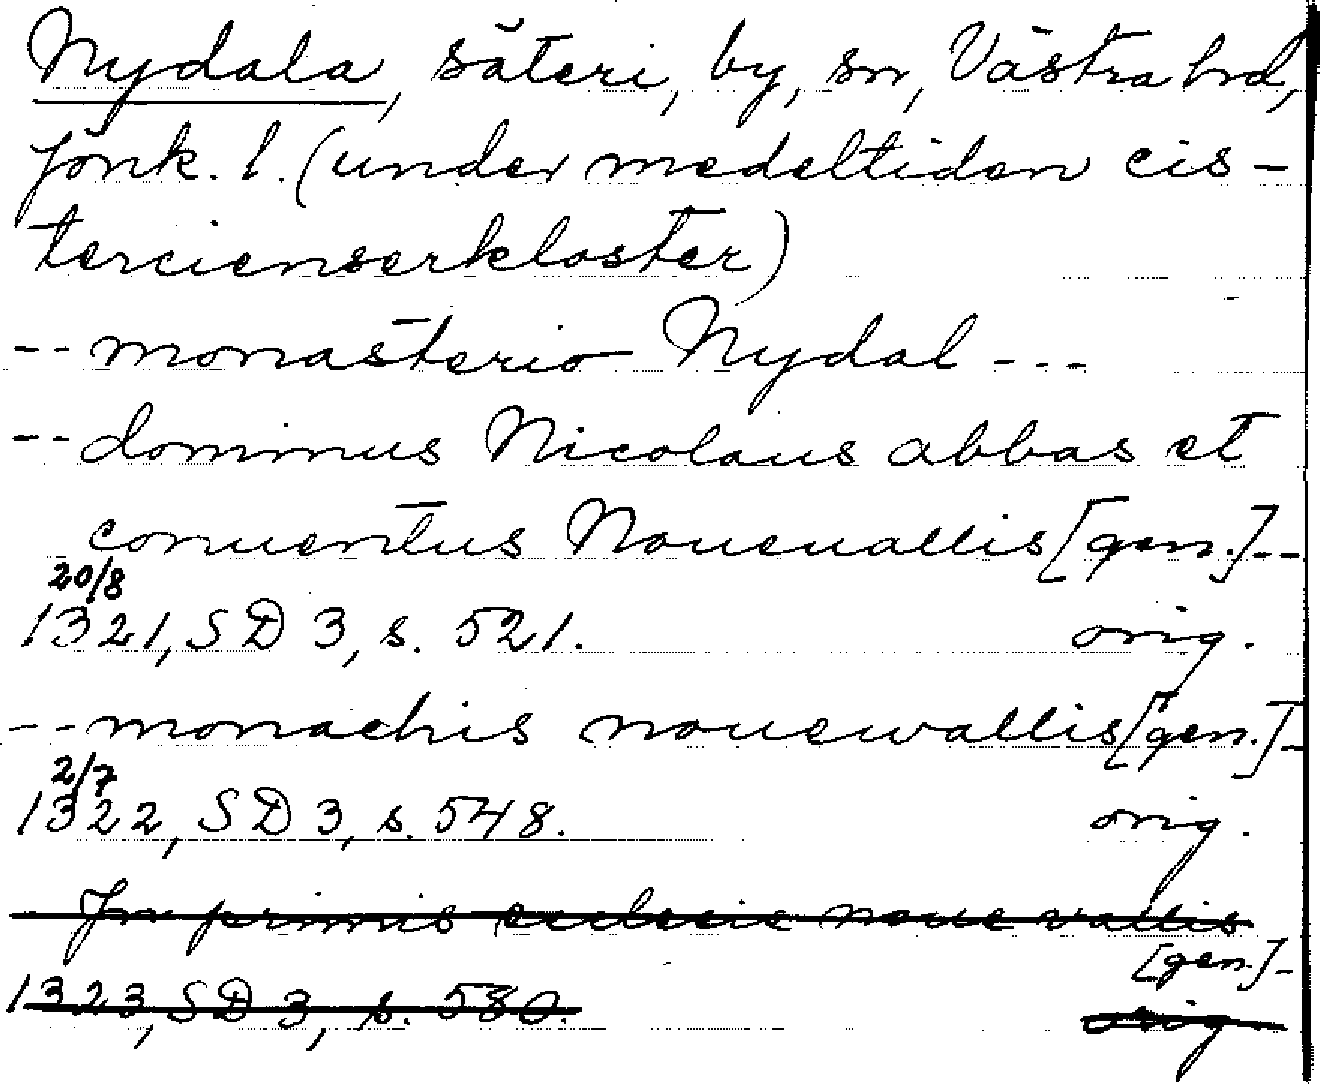 Nydala, säteri, by, sn, Västra hd,
Jönk. l. (under medeltiden cis-
tercienserkloster)
-- monasterio Nydal ---
-- dominus Nicolaus abbas et
conuentus Noueuallis [gen.] --
20/8
1321, SD 3, s. 521. orig.
-- monachis nouewallis [gen.] -
2/7
1322, SD 3, s. 548. orig.
Jn primis ecclesie noue vallis
[gen.] -
1323, SD 3, s. 580. orig